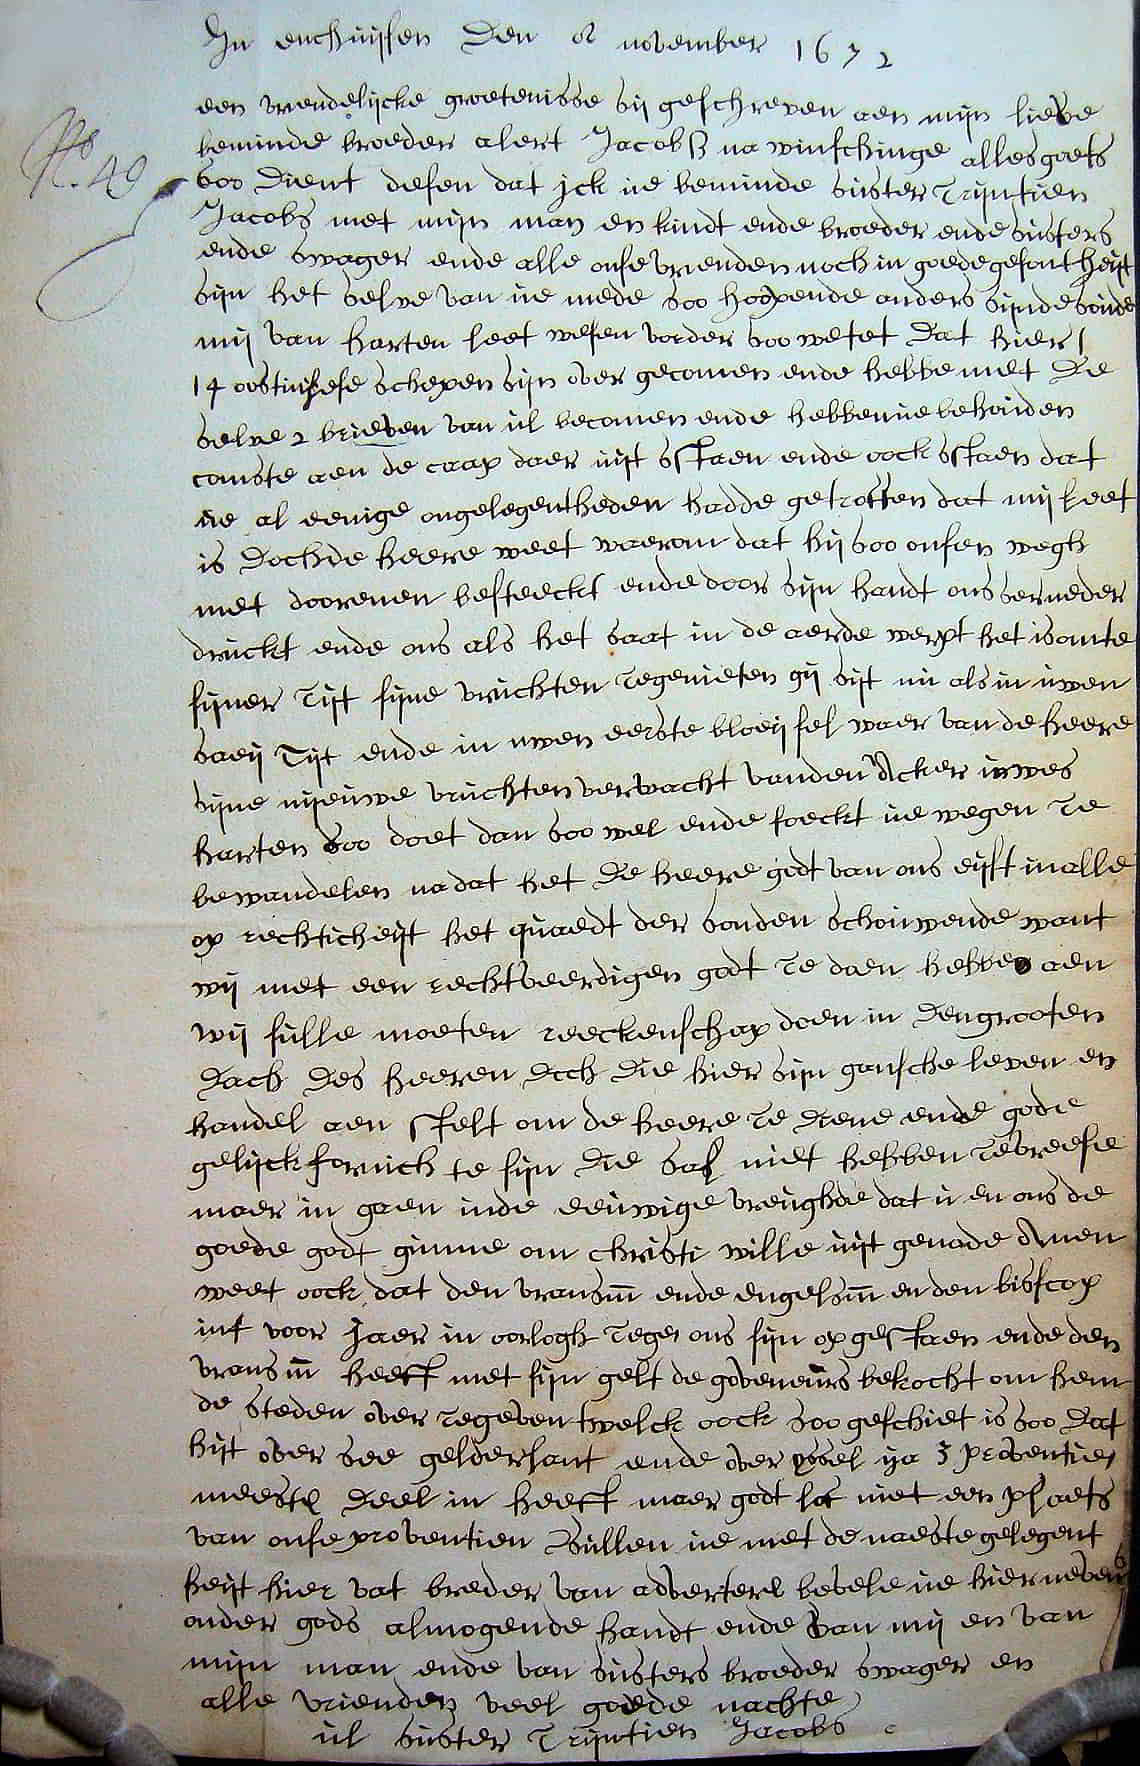 In enchuijsen Den 8 november 1672
een vrendelijcke groetenisse sij geschreven aen mijn lieve
beminde broeder alert Jacobs na winschinge alles goets
No. 49
soo Dient desen dat ick ue beminde suster Trijntien
Jacobs met mijn man en kindt ende broeder ende susters
ende swager ende alle onse vrienden noch in goede gesontheijt
sijn het selve van ue mede soo hoopende anders sijnde soude
mij van harten leet wesen vorder soo wetet Dat hier
14 oostindese schepen sijn over gecomen ende hebbe met De
selve 2 brieven van ul becomen ende hebben ue behouden
comste aen de caap daer uijt verstaen ende oock verstaen dat
ue al eenige ongelegentheden hadde getroffen dat mij leet
is Doch de heere weet waerom dat hij soo onsen wegh
met doorenen besteeckt ende door sijn handt ons ter neder
druckt ende ons als het saat in de aerde werpt het is om te
sijner Tijt sijne vruchten te genieten gij sijt nu als in uwen
saeij Tijt ende in uwen eerste bloeijsel waer van de heere
sijne nijeuwe vruchten verwacht vanden Acker uwes
harten soo doet dan soo wel ende soeckt ue wegen te
bewandelen nadat het De heere godt van ons eijst in alle
op rechticheijt het quaedt der sonden schouwende want
wij met een rechtveerdigen godt te doen hebben aen
wij sulle moeten reeckenschap doen in Den grooten
Dach Des heeren Och Die hier sijn gansche leven en
handel aen stelt om de heere te Diene ende gode
gelijckformich te sijn Die sal niet hebben te vreese
maer in gaen inde eeuwige vreughde dat u en ons de
goede godt gunne om christi wille uijt genade Amen
weet oock dat den vransm ende engelsm en den bisscop
int voor Jaer in oorlogh tege ons sijn op gestaen ende den
vransm heeft met sijn gelt de goveneurs bekocht om hem
de steden over te geven twelck oock soo geschiet is soo Dat
hijt over see gelderlant ende over yssel ya 3 proventies
meeste Deel in heeft maer godt lof niet een plaets
van onse proventien sullen ue met de naeste gelegent
heijt hier vat breder van adverteren bevele ue hier nevens
onder gods almogende handt ende van mij en van
mijn man ende van susters broeder swager en
alle vrienden veel goede nachte
ul suster Trijntien Jacobs